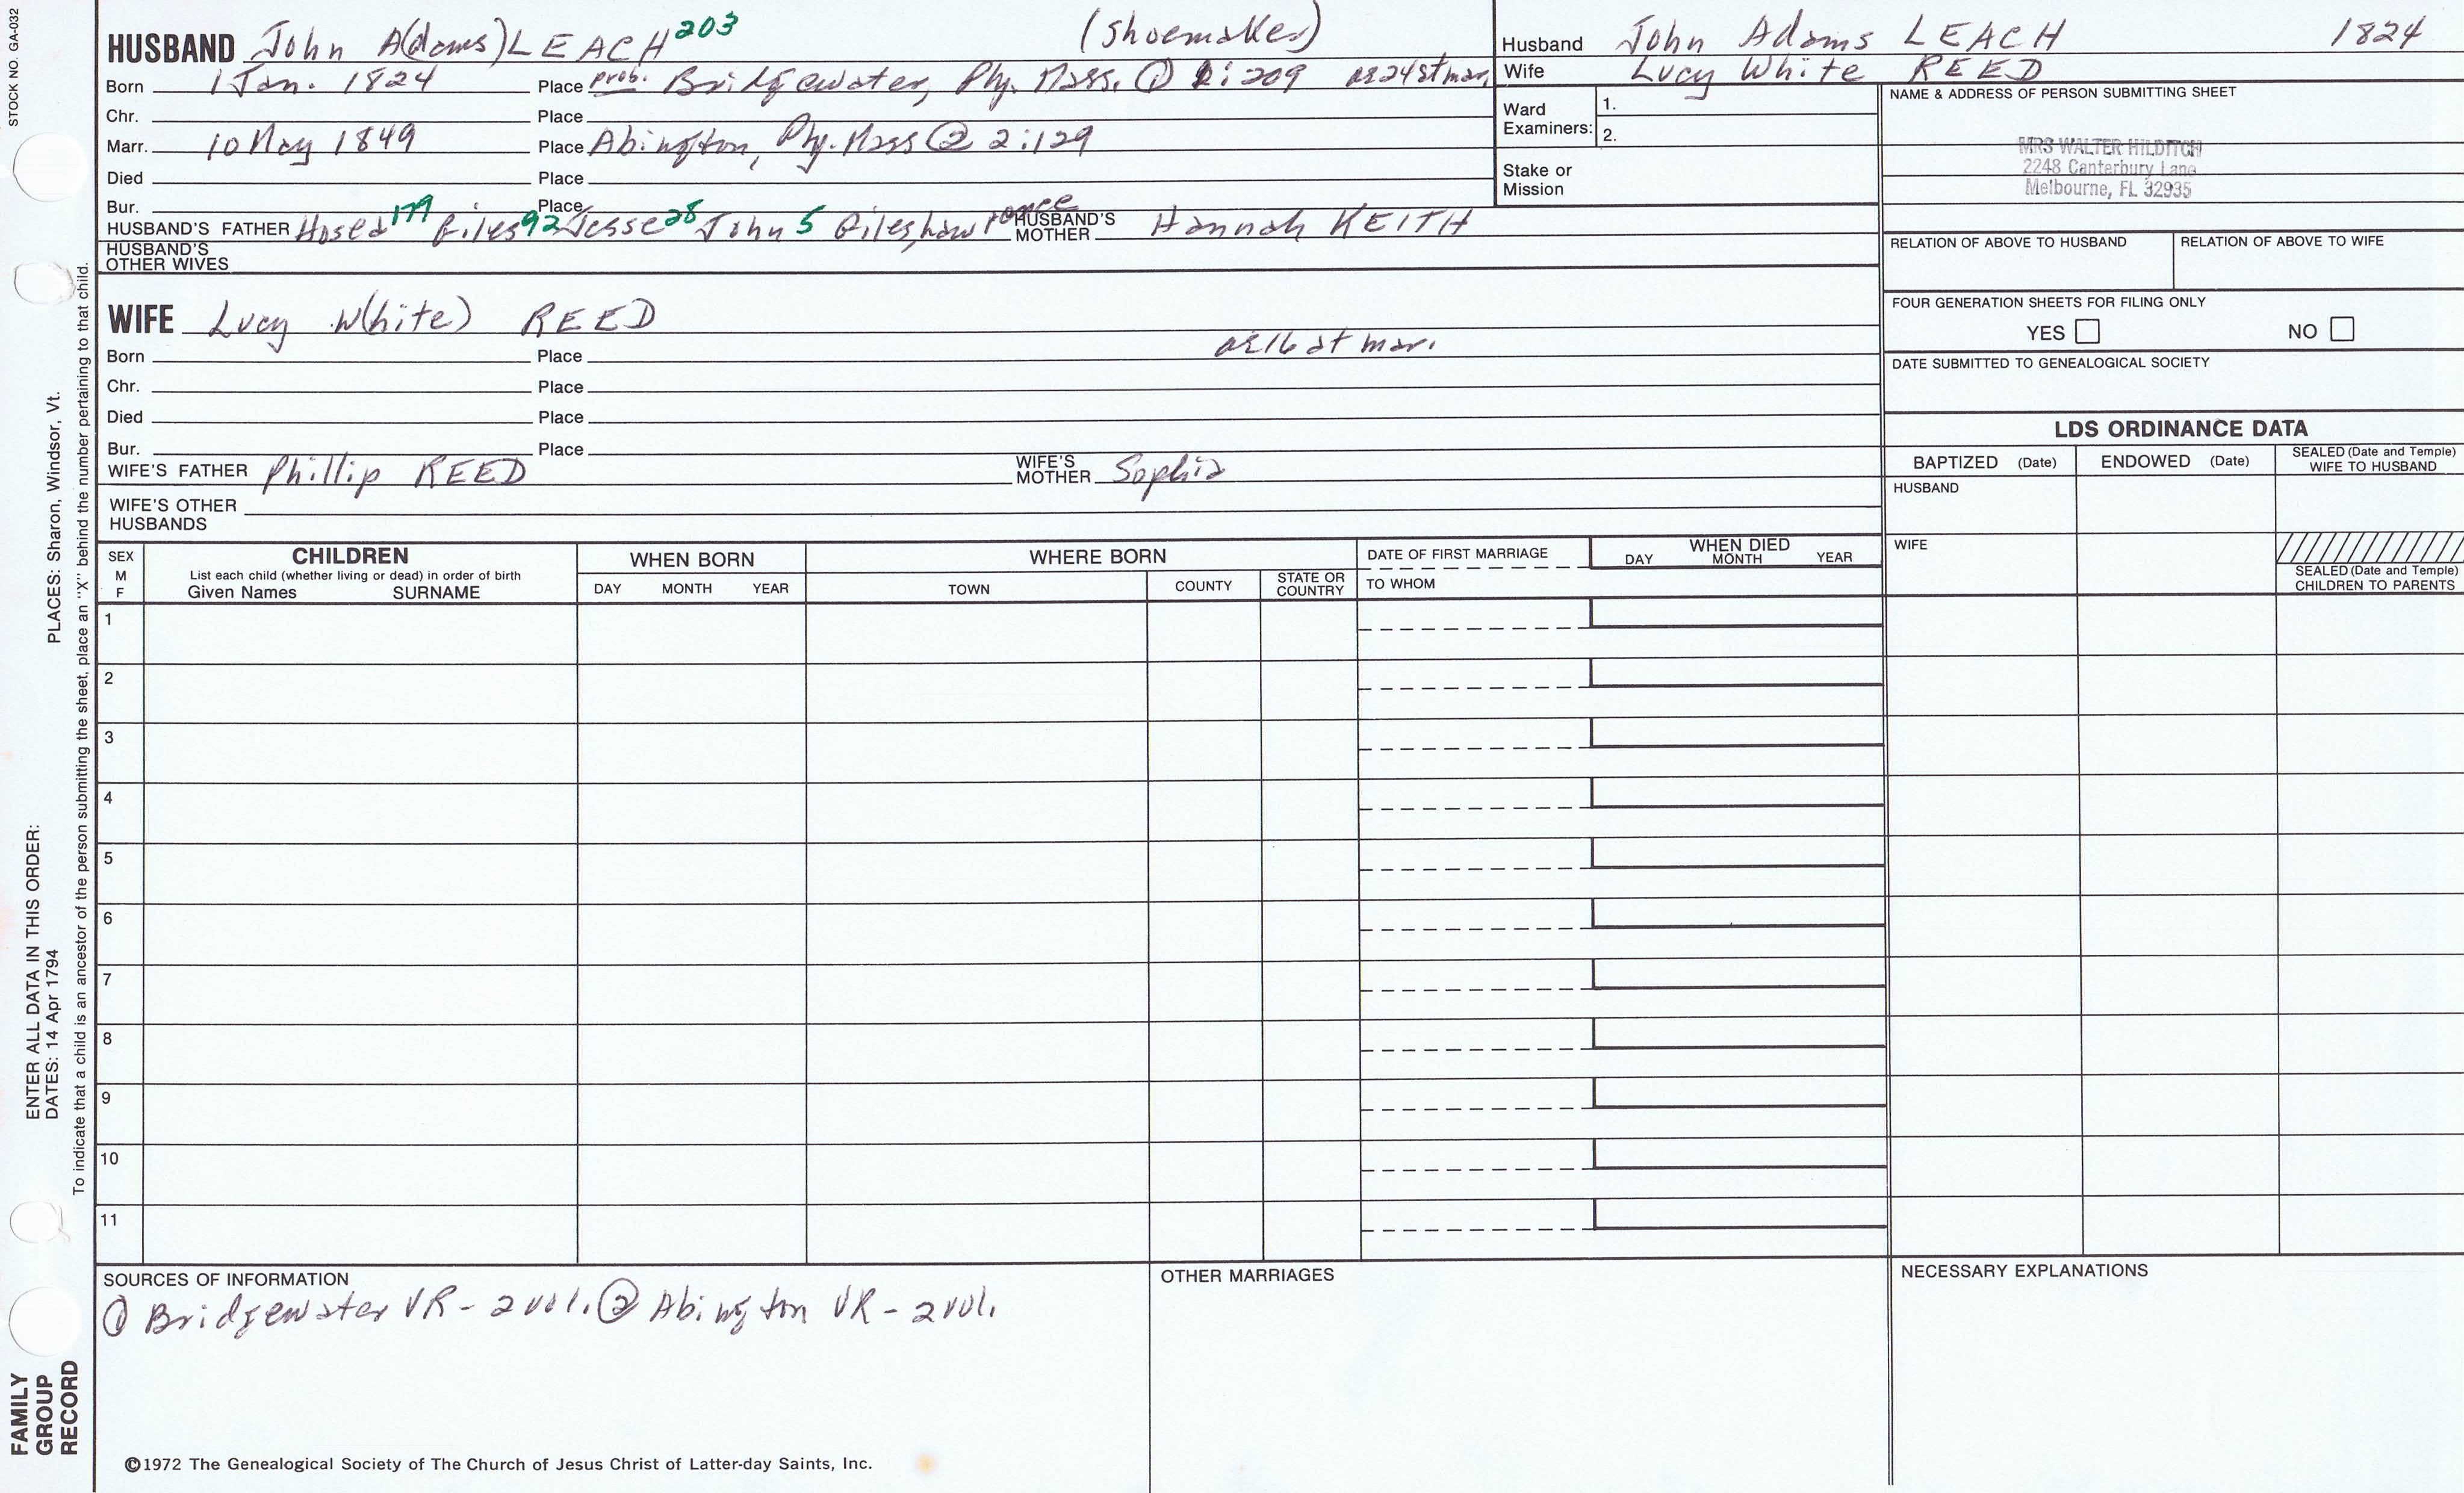 STOCK NO. GA-032
HUSBAND John A(dams) LEACH 203 (shoemaker)
Born 1 Jan. 1824 Place prob. Bridgewater, Ply. Mass. ① 1:209 ae 24 at mar.
Chr. Place
Marr. 10 May 1849 Place Abington, Ply. Mass ② 2:129
Died Place
Bur. Place
HUSBAND'S FATHER Hosea 179 Giles 92 Jesse 28 John 5 Giles, Lawrence HUSBAND'S MOTHER Hannah KEITH
HUSBAND'S OTHER WIVES
Husband John Adams LEACH 1824
Wife Lucy White REED
Ward Examiners: 1.
2.
Stake or Mission
NAME & ADDRESS OF PERSON SUBMITTING SHEET
MRS WALTER HILDITCH
2248 Canterbury Lane
Melbourne, FL 32935
RELATION OF ABOVE TO HUSBAND RELATION OF ABOVE TO WIFE
FOUR GENERATION SHEETS FOR FILING ONLY
YES NO
DATE SUBMITTED TO GENEALOGICAL SOCIETY
WIFE Lucy W(hite) REED
Born Place ae 16 at mar.
Chr. Place
Died Place
Bur. Place
WIFE'S FATHER Phillip REED WIFE'S MOTHER Sophia
WIFE'S OTHER HUSBANDS
LDS ORDINANCE DATA
BAPTIZED (Date) ENDOWED (Date) SEALED (Date and Temple) WIFE TO HUSBAND
HUSBAND
WIFE
SEALED (Date and Temple) CHILDREN TO PARENTS
SEX M F
CHILDREN
List each child (whether living or dead) in order of birth
Given Names SURNAME
WHEN BORN
DAY MONTH YEAR
WHERE BORN
TOWN COUNTY STATE OR COUNTRY
DATE OF FIRST MARRIAGE
TO WHOM
WHEN DIED
DAY MONTH YEAR
1
2
3
4
5
6
7
8
9
10
11
SOURCES OF INFORMATION
① Bridgewater VR - 2 vol. ② Abington VR - 2 vol.
OTHER MARRIAGES
NECESSARY EXPLANATIONS
©1972 The Genealogical Society of The Church of Jesus Christ of Latter-day Saints, Inc.
FAMILY GROUP RECORD
ENTER ALL DATA IN THIS ORDER:
DATES: 14 Apr 1794 PLACES: Sharon, Windsor, Vt.
To indicate that a child is an ancestor of the person submitting the sheet, place an "X" behind the number pertaining to that child.